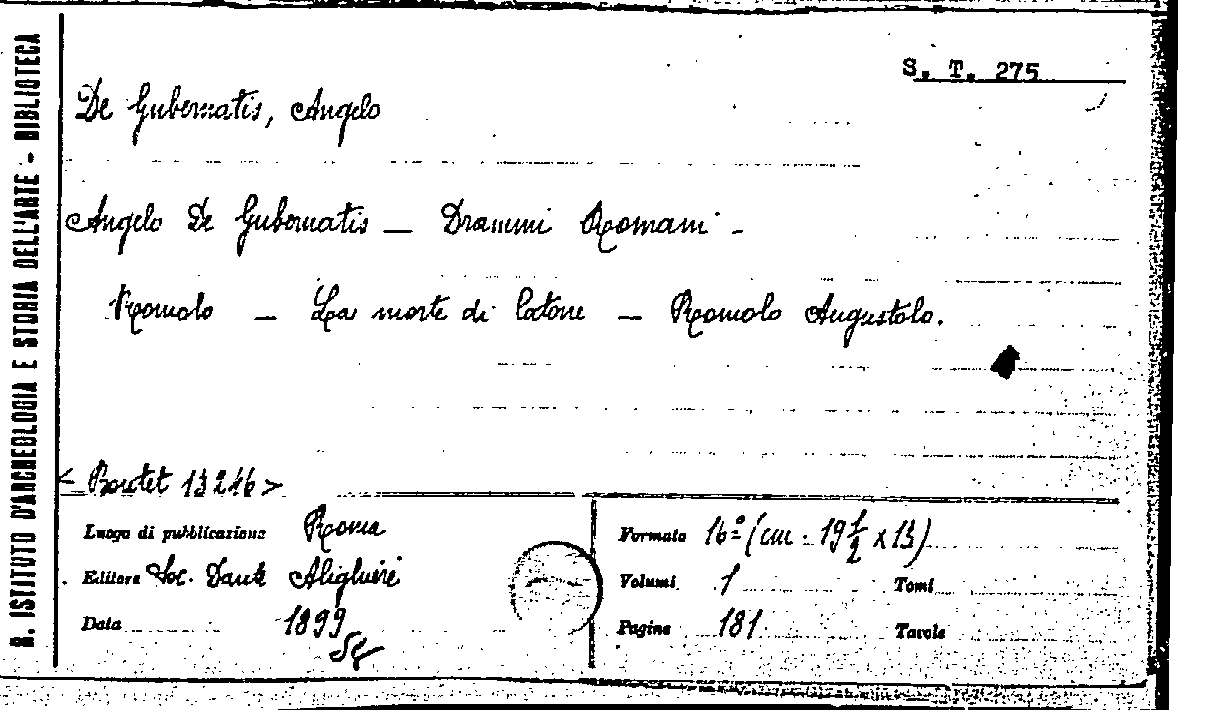 R. ISTITUTO D'ARCHEOLOGIA E STORIA DELL'ARTE - BIBLIOTECA
S. T. 275
De Gubernatis, Angelo
Angelo De Gubernatis — Drammi Romani -
Romolo — La morte di Catone — Romolo Augustolo.
< Boutet 13246 >
Luogo di pubblicazione Roma
Editore Soc. Dante Alighieri
Data 1899
Formato 16º (cm. 19½ x 13)
Volumi 1 Tomi
Pagine 181 Tavole